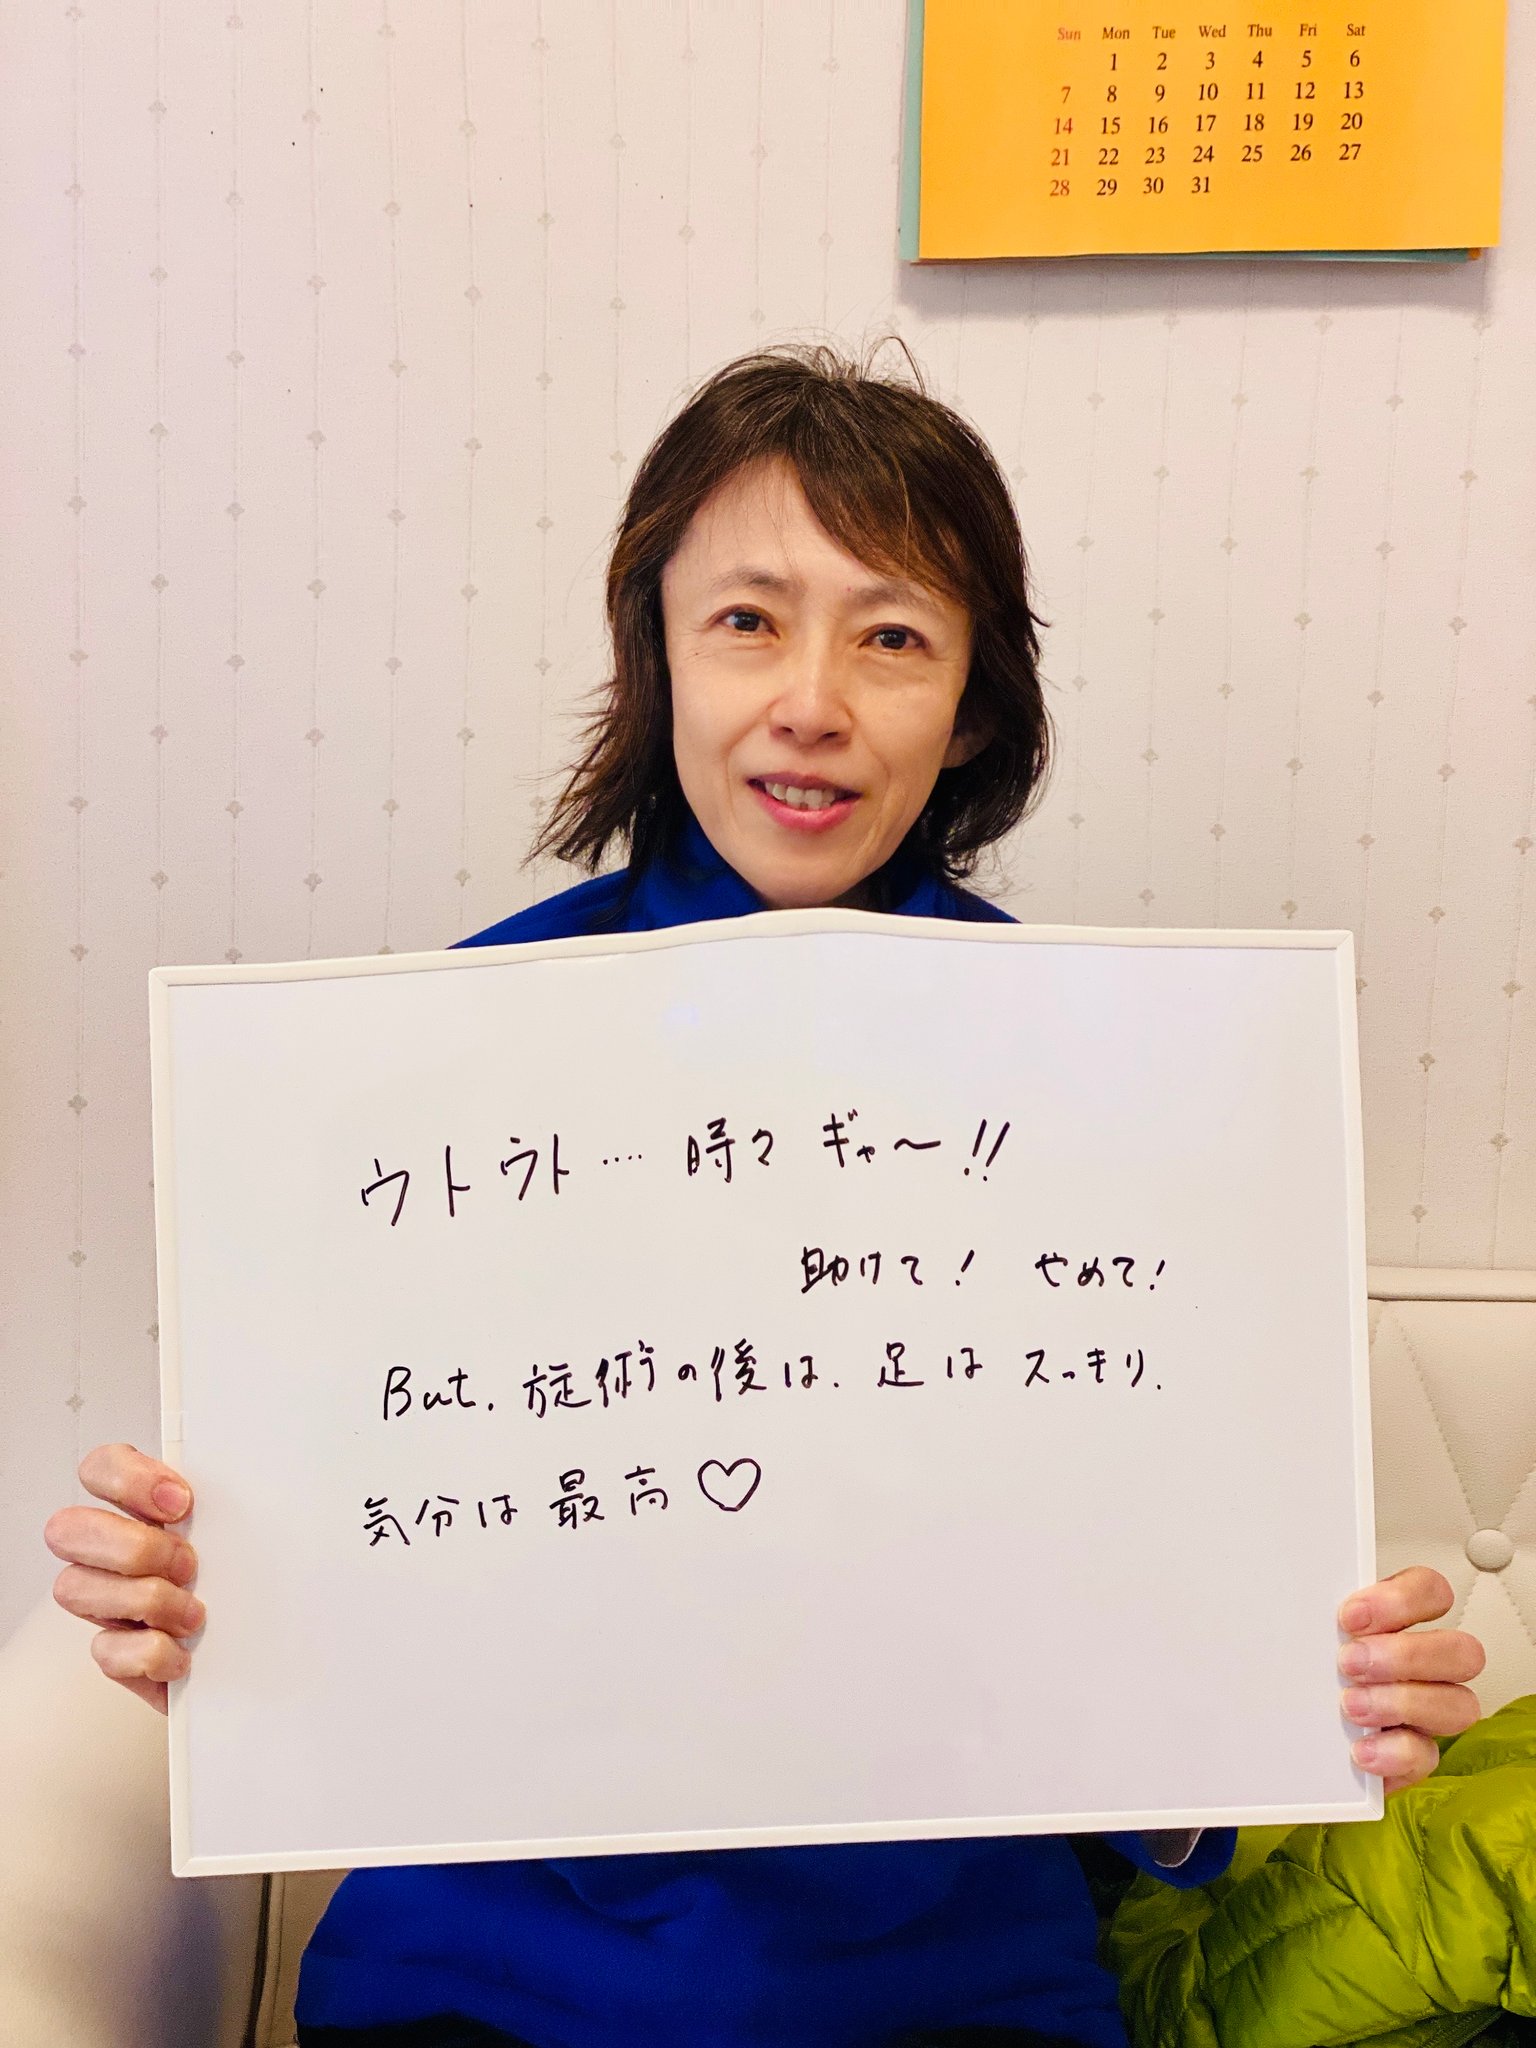 Sun Mon Tue Wed Thu Fri Sat
1 2 3 4 5 6
7 8 9 10 11 12 13
14 15 16 17 18 19 20
21 22 23 24 25 26 27
28 29 30 31
ウトウト‥‥ 時々 ギャ〜!!
助けて! やめて!
But. 施術の後は. 足は スッキリ.
気分は 最高♡